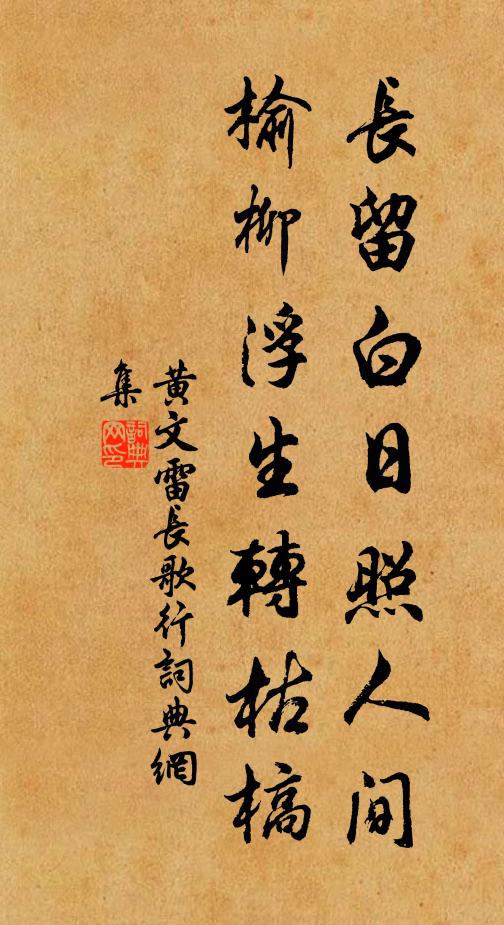 長留白日照人間
榆柳浮生轉枯槁
黄文雷長歌行詞典網
集
詞典網印